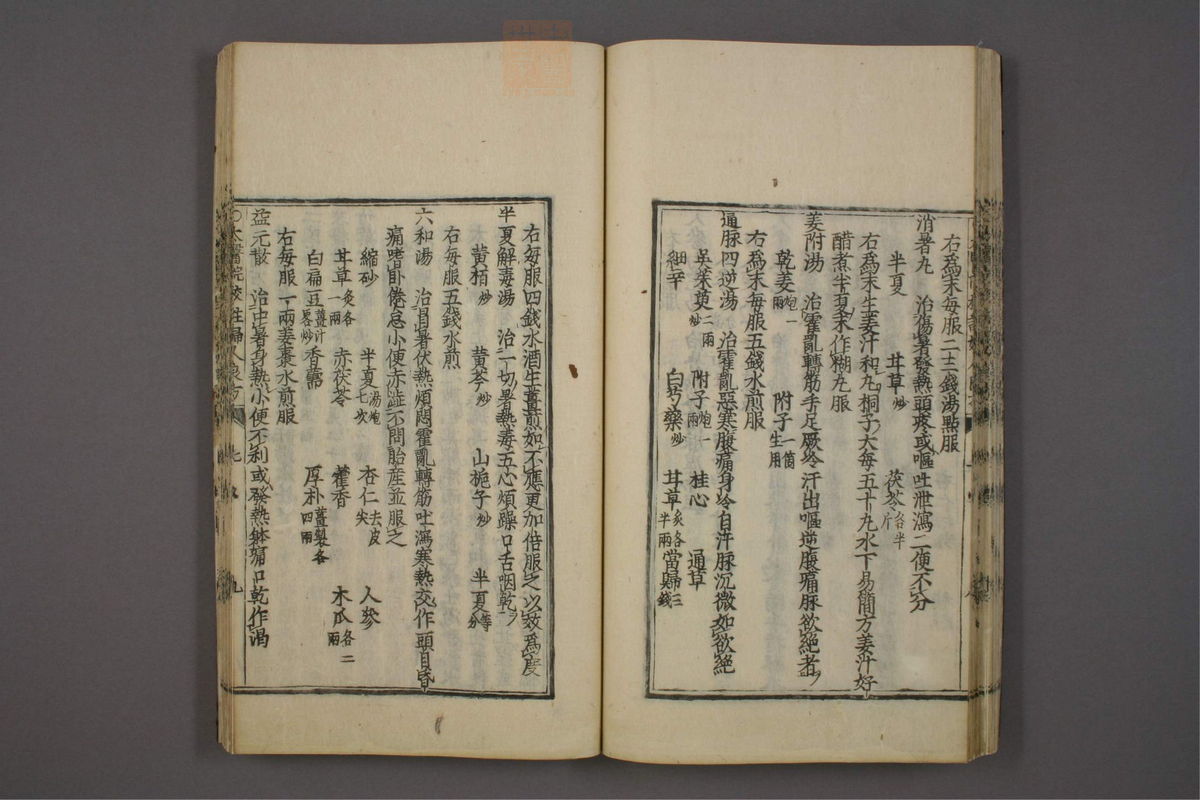 右爲末每服二三錢湯點服
消暑丸　治傷暑發熱頭疼或嘔吐泄瀉二便不分
半夏　甘草炒　茯苓各半斤
右爲末生姜汁和丸桐子大每五十丸水下易簡方姜汁好
醋煮半夏末作糊丸服
姜附湯　治霍亂轉筋手足厥冷汗出嘔逆腹痛脉欲絕者
乾姜炮一兩　附子一箇生用
右爲末每服五錢水煎服
通脉四逆湯　治霍亂惡寒腹痛身冷自汗脉沉微如欲絕
吳茱萸炒二兩　附子炮一兩　桂心　通草
細辛　白芍藥炒　甘草炙各半兩　當歸三錢
右每服四錢水酒生薑煎如不應更加倍服之以效爲度
半夏解毒湯　治一切暑熱毒五心煩躁口舌咽乾
黃栢炒　黃芩炒　山梔子炒　半夏等分
右每服五錢水煎
六和湯　治冒暑伏熱煩悶霍亂轉筋吐瀉寒熱交作頭目昏
痛嗜卧倦怠小便赤澁不問胎産並服之
縮砂　半夏湯炮七次　杏仁去皮尖　人參
甘草炙各一兩　赤茯苓　藿香　木瓜各二兩
白扁豆薑汁畧炒　香薷　厚朴薑製各四兩
右每服一兩姜棗水煎服
益元散　治中暑身熱小便不利或發熱躰痛口乾作渴
○太醫院校註婦人良方　七　九